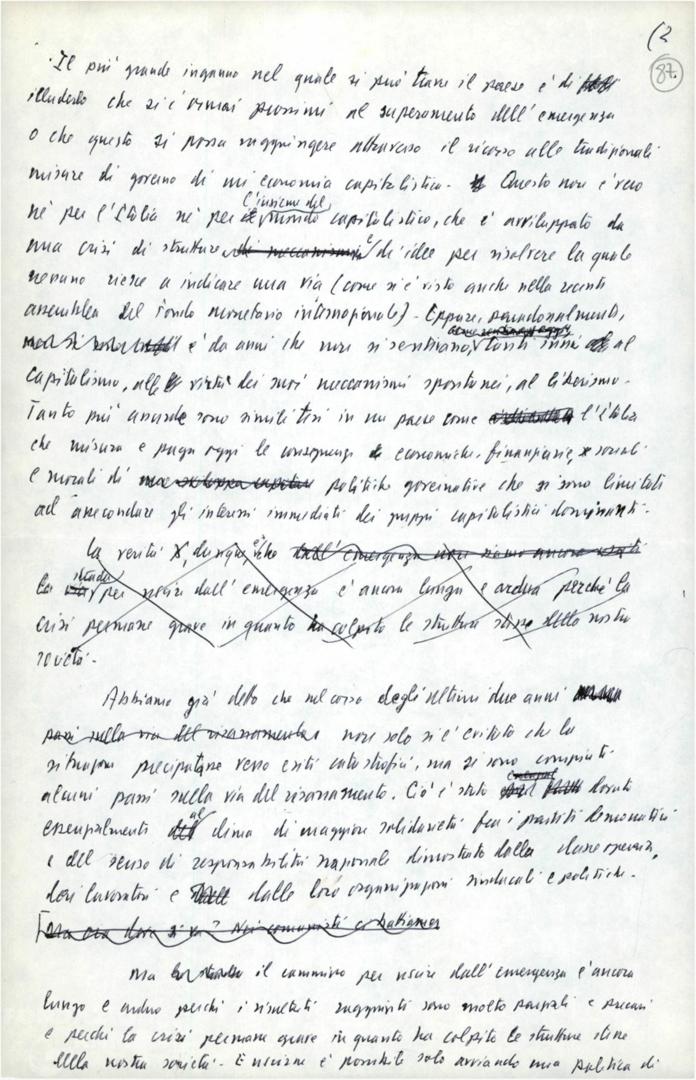 (2
87.
Il più grande inganno nel quale si può trarre il paese è di
illuderlo che si è ormai prossimi al superamento dell'emergenza
o che questo si possa raggiungere attraverso il ricorso alle tradizionali
misure di governo di un'economia capitalistica. Questo non è vero
né per l'Italia né per l'insieme del mondo capitalistico, che è avviluppato da
una crisi di strutture e di idee per risolvere la quale
nessuno riesce a indicare una via (come si è visto anche nella recente
assemblea del Fondo monetario internazionale). Eppure, paradossalmente,
è da anni che non si sentivano, tanti inni al
capitalismo, alle virtù dei suoi meccanismi spontanei, al liberismo.
Tanto più assurde sono simili tesi in un paese come l'Italia
che misura e paga oggi le conseguenze economiche, finanziarie, sociali
e morali di politiche governative che si sono limitate
ad assecondare gli interessi immediati dei gruppi capitalistici dominanti.
La verità, dunque, è che dall'emergenza non siamo ancora usciti
la strada per uscire dall'emergenza è ancora lunga e ardua perché la
crisi permane grave in quanto ha colpito le strutture stesse della nostra
società.
Abbiamo già detto che nel corso degli ultimi due anni
passi sulla via del risanamento non solo si è evitato che la
situazione precipitasse verso esiti catastrofici, ma si sono compiuti
alcuni passi sulla via del risanamento. Ciò è stato dovuto
essenzialmente al clima di maggiore solidarietà fra i partiti democratici
e del senso di responsabilità nazionale dimostrato dalla classe operaia,
dai lavoratori e dalle loro organizzazioni sindacali e politiche.
[Ma ora dove si va? Noi comunisti ci battiamo
Ma il cammino per uscire dall'emergenza è ancora
lungo e arduo perché i risultati raggiunti sono molto parziali e precari
e perché la crisi permane grave in quanto ha colpito le strutture stesse
della nostra società. E uscirne è possibile solo avviando una politica di